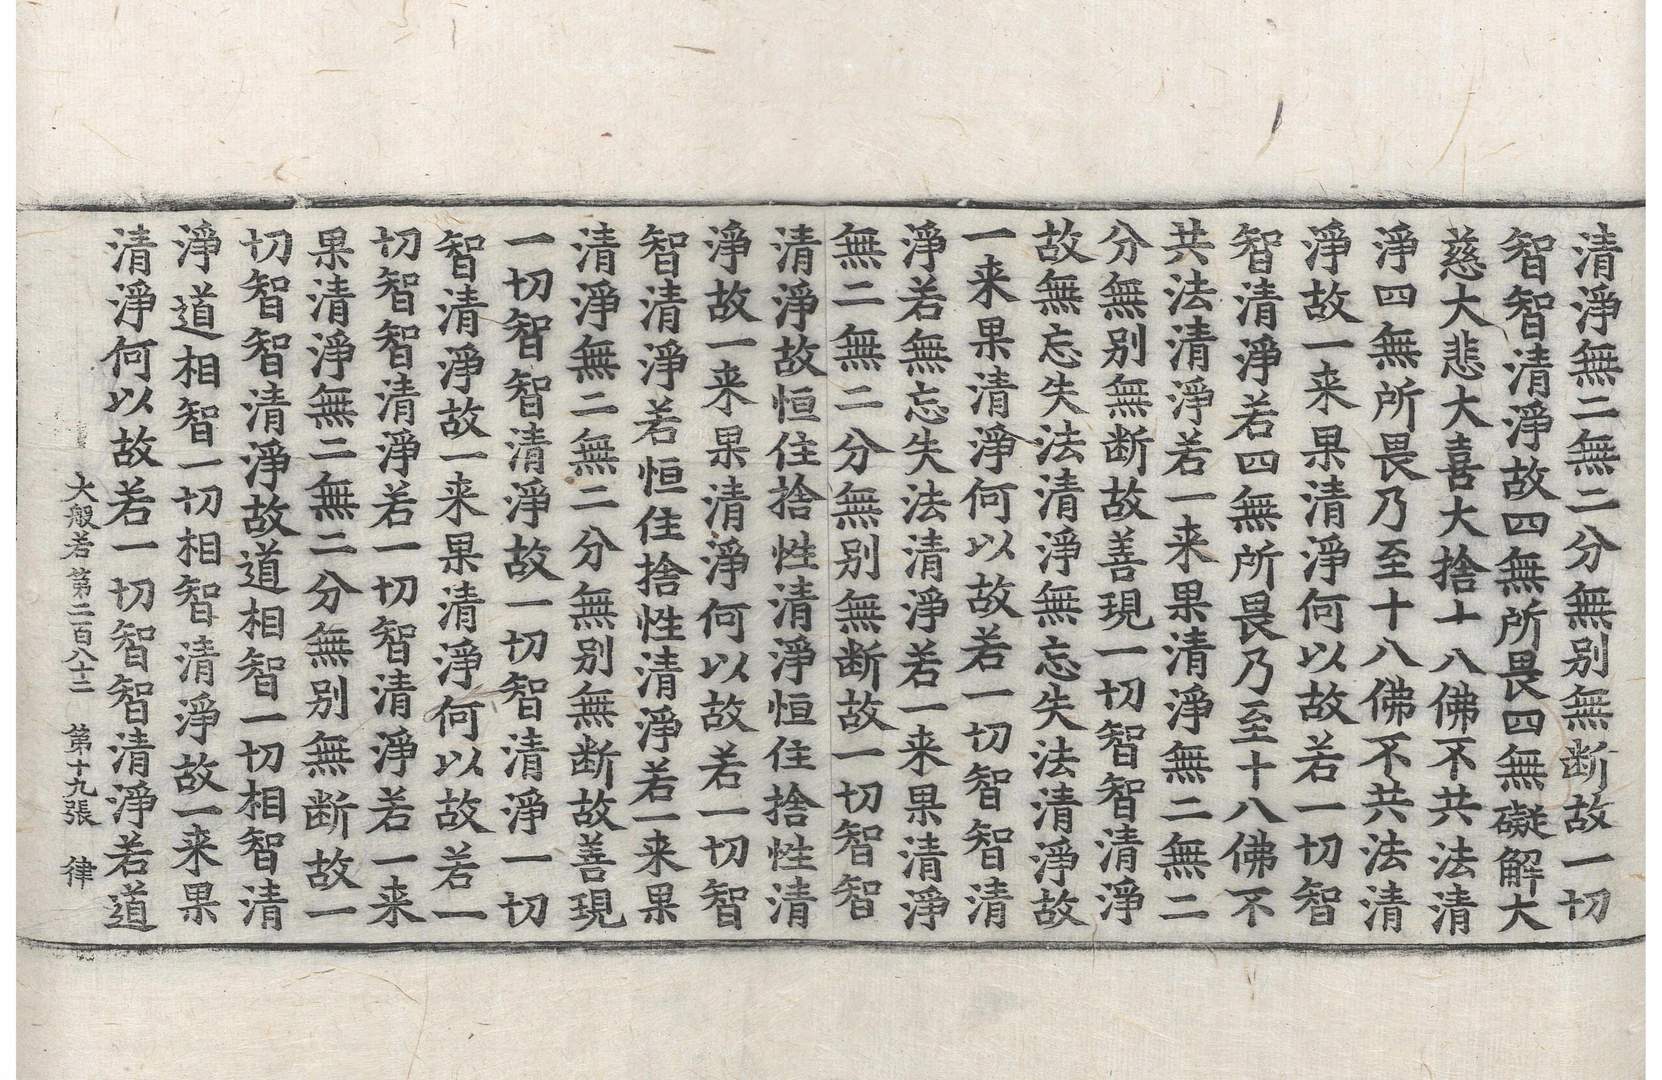 清淨無二無二分無别無断故一切
智智清淨故四無所畏四無礙解大
慈大悲大喜大捨十八佛不共法清
淨四無所畏乃至十八佛不共法清
淨故一来果清淨何以故若一切智
智清淨若四無所畏乃至十八佛不
共法清淨若一来果清淨無二無二
分無别無断故善現一切智智清淨
故無忘失法清淨無忘失法清淨故
一来果清淨何以故若一切智智清
淨若無忘失法清淨若一来果清淨
無二無二分無别無断故一切智智
清淨故恒住捨性清淨恒住捨性清
淨故一来果清淨何以故若一切智
智清淨若恒住捨性清淨若一来果
清淨無二無二分無别無断故善現
一切智智清淨故一切智清淨一切
智清淨故一来果清淨何以故若一
切智智清淨若一切智清淨若一来
果清淨無二無二分無别無断故一
切智智清淨故道相智一切相智清
淨道相智一切相智清淨故一来果
清淨何以故若一切智智清淨若道
大般若第二百八十二 第十九張 律